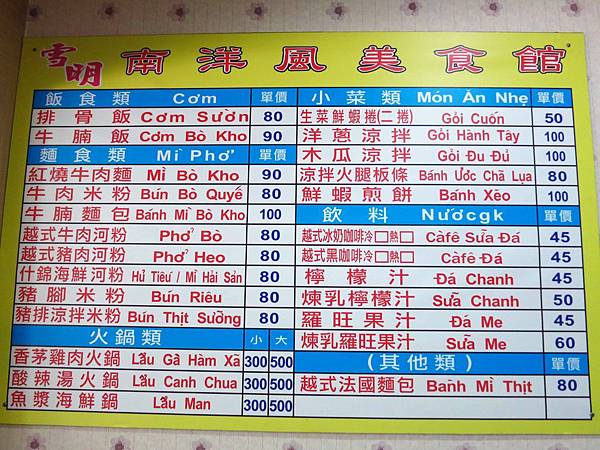 雪明 南洋風美食館
飯食類 Cơm 單價
排骨飯 Cơm Sườn 80
牛腩飯 Cơm Bò Kho 90
麵食類 Mì Phở 單價
紅燒牛肉麵 Mì Bò Kho 90
牛肉米粉 Bún Bò Quyế 80
牛腩麵包 Bánh Mì Bò Kho 100
越式牛肉河粉 Phở Bò 80
越式豬肉河粉 Phở Heo 80
什錦海鮮河粉 Hủ Tiếu / Mì Hải Sản 80
豬腳米粉 Bún Riêu 80
豬排涼拌米粉 Bún Thịt Sường 80
火鍋類 小 大
香茅雞肉火鍋 Lẩu Gà Hàm Xã 300 500
酸辣湯火鍋 Lẩu Canh Chua 300 500
魚漿海鮮鍋 Lẩu Man 300 500
小菜類 Món Ăn Nhẹ 單價
生菜鮮蝦捲(二捲) Gỏi Cuốn 50
洋蔥涼拌 Gỏi Hành Tây 100
木瓜涼拌 Gỏi Đu Đủ 100
涼拌火腿板條 Bánh Ướt Chả Lụa 80
鮮蝦煎餅 Bánh Xèo 100
飲料 Nướcgk 單價
越式冰奶咖啡冷□熱□ Càfê Sữa Đá 45
越式黑咖啡冷□熱□ Càfê Đá 45
檸檬汁 Đá Chanh 45
煉乳檸檬汁 Sữa Chanh 50
羅旺果汁 Đá Me 45
煉乳羅旺果汁 Sữa Me 60
(其他類) 單價
越式法國麵包 Bánh Mì Thịt 80